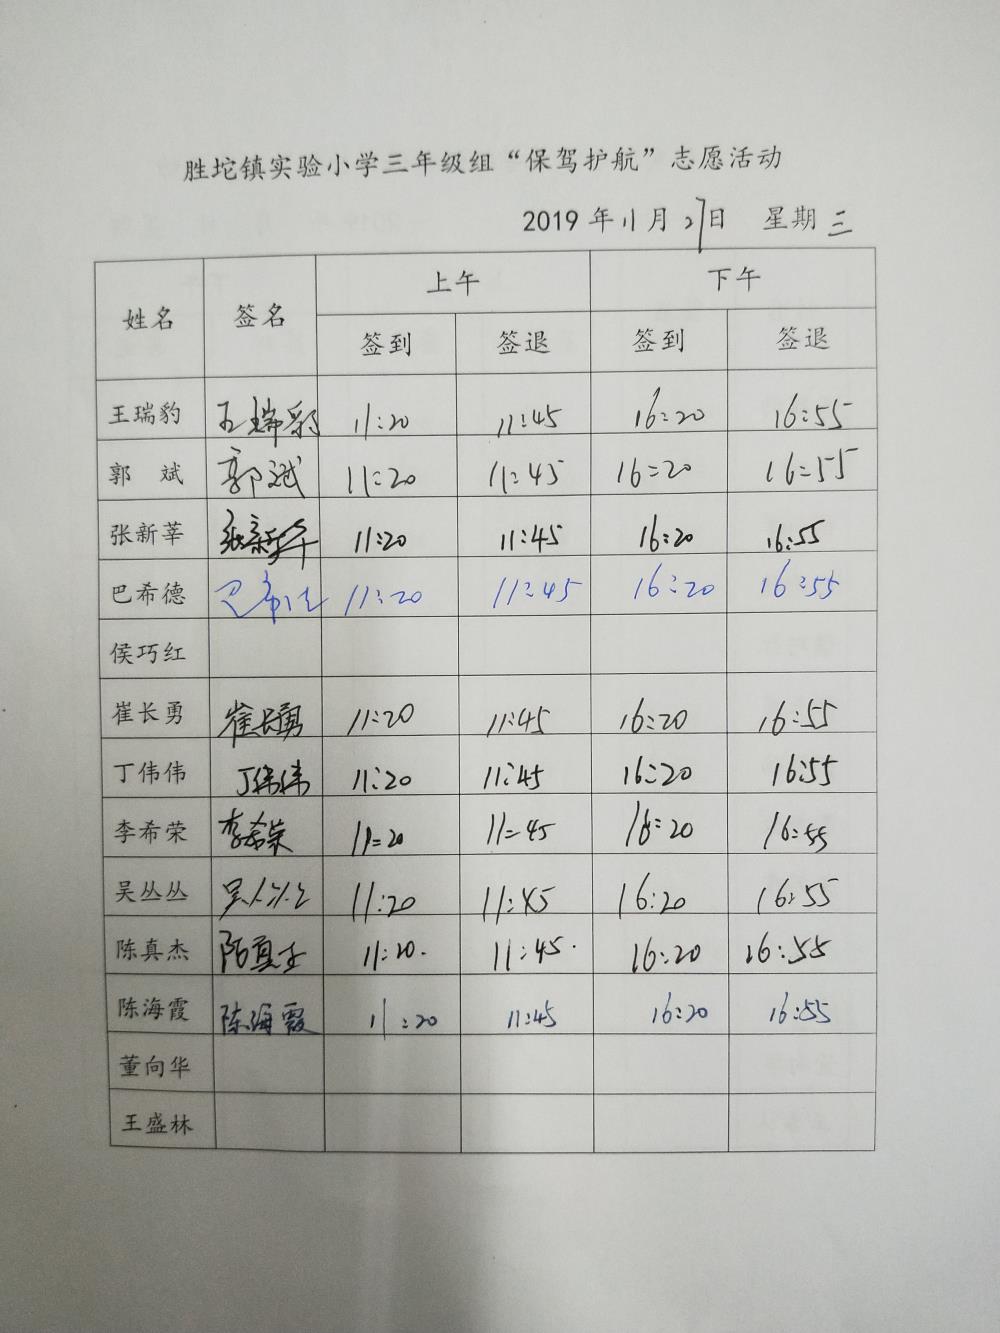 胜坨镇实验小学三年级组“保驾护航”志愿活动
2019年11月27日 星期三
姓名 签名 上午 下午
签到 签退 签到 签退
王瑞豹 王瑞豹 11:20 11:45 16:20 16:55
郭 斌 郭斌 11:20 11:45 16:20 16:55
张新莘 张新莘 11:20 11:45 16:20 16:55
巴希德 巴希德 11:20 11:45 16:20 16:55
侯巧红
崔长勇 崔长勇 11:20 11:45 16:20 16:55
丁伟伟 丁伟伟 11:20 11:45 16:20 16:55
李希荣 李希荣 11:20 11:45 16:20 16:55
吴丛丛 吴丛丛 11:20 11:45 16:20 16:55
陈真杰 陈真杰 11:20. 11:45. 16:20 16:55
陈海霞 陈海霞 11:20 11:45 16:20 16:55
董向华
王盛林